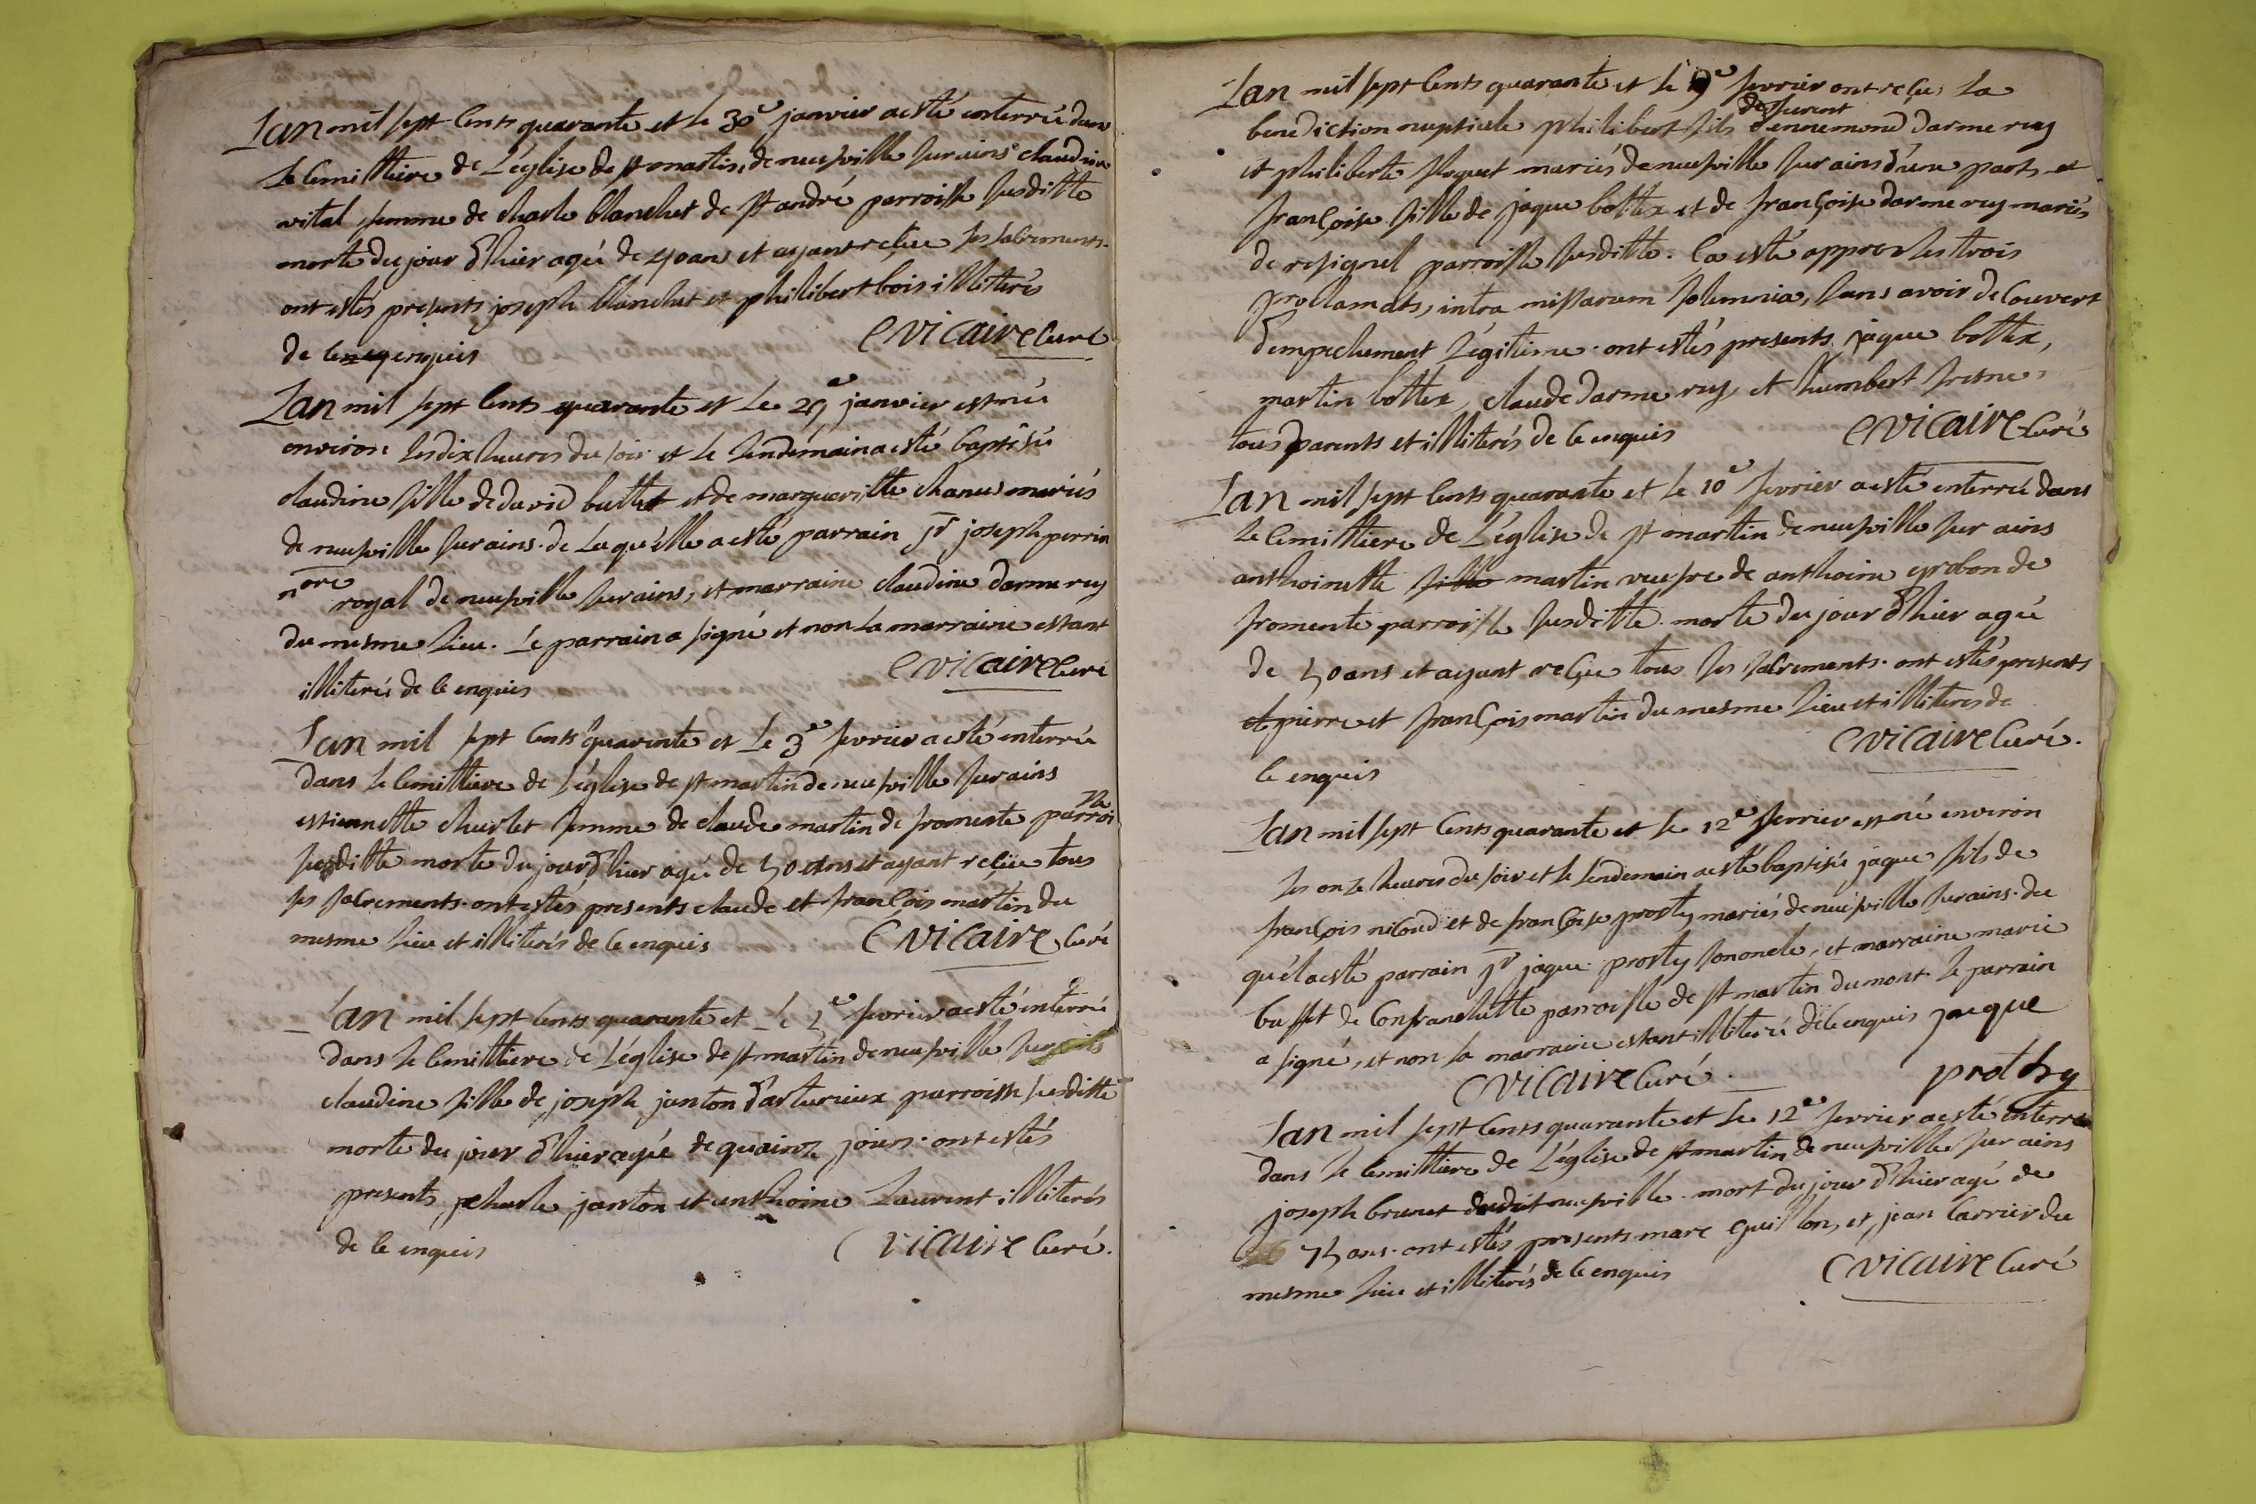 Lan mil sept cents quarante et le 30e janvier a esté enterrée dans
le cemittiere de L'église de st martin, de neufville sur ains claudine
vital femme de charle blanchet de st andré parroisse susditte
morte du jour d'hier agée de 40 ans et ayant reçue ses sacrements.
ont estés presents joseph blanchet et philibert bois illiterés
de ce enquis
E vicaire curé
Lan mil sept cents quarante et Le 29e janvier est née
environ les dix heures du soir et le lendemain a esté baptisée
claudine fille de david buttet et de margueritte chanu mariés
de neufville sur ains. de Laquélle a esté parrain sr joseph perrin
nore royal de neufville sur ains, et marraine claudine darmeruy
du mesme lieu. Le parrain a signé et non la marraine estant
illiterée de ce enquis
E vicaire curé
Lan mil sept cents quarante et Le 3e fevrier a esté enterrée
dans le cemittiere de L'église de st martin de neufville sur ains
estiennette charlet femme de claude martin de fromente parroisse
susditte morte du jour d'hier agée de 50 ans et ayant reçue tous
ses sacrements. ont estés presents claude et françois martin du
mesme lieu et illiterés de ce enquis
E vicaire curé
Lan mil sept cents quarante et Le 5e fevrier a esté enterrée
dans le cemittiere de L'église de st martin de neufville sur ains
claudine fille de joseph janton d'arturieux parroisse susditte
morte du jour d'hier agée de quainze jours. ont estés
presents, charle janton et anthoine Laurent illiterés
de ce enquis
E vicaire curé.
Lan mil sept cents quarante et le 9e fevrier ont reçu La
benediction nuptiale philibert fils deffunt d'ennemond darmeruy
et philiberte floquet mariés de neufville sur ains d'une part, et
françoise fille de jaque bottex et de françoise darmeruy mariés
de resignel parroisse susditte. Ca esté apprez les trois
proclamats, intra missarum solemnia, sans avoir decouvert
d'empechement Légitime. ont estés presents jaque bottex,
martin bottex, claude darmeruy, et humbert fresne,
tous parents et illiterés de ce enquis
E vicaire curé
Lan mil sept cents quarante et le 10e fevrier a esté enterrée dans
le cemittiere de L'église de st martin de neufville sur ains
anthoinette martin veufve de anthoine eprobon de
fromente parroisse susditte. morte du jour d'hier agée
de 50 ans et ayant reçue tous ses sacrements. ont estés presents
pierre et françois martin du mesme lieu et illiterés de
ce enquis
E vicaire curé.
Lan mil sept cents quarante et le 12e fevrier est né environ
les onze heures du soir et le lendemain a esté baptisé jaque fils de
françois nicoud et de françoise prosty mariés de neufville sur ains. du
quél a esté parrain sr jaque prosty son oncle, et marraine marie
buffet de Confranchette parroisse de st martin du mont. le parrain
a signé, et non la marraine estant illiterée de ce enquis jaque
E vicaire curé. prothy
Lan mil sept cents quarante et Le 12e fevrier a esté enterré
dans le cemittiere de L'église de st martin de neufville sur ains
joseph brunet dudit neufville. mort du jour d'hier agé de
75 ans. ont estés presents marc eguillon, et jean Carrier du
mesme lieu et illiterés de ce enquis
E vicaire curé